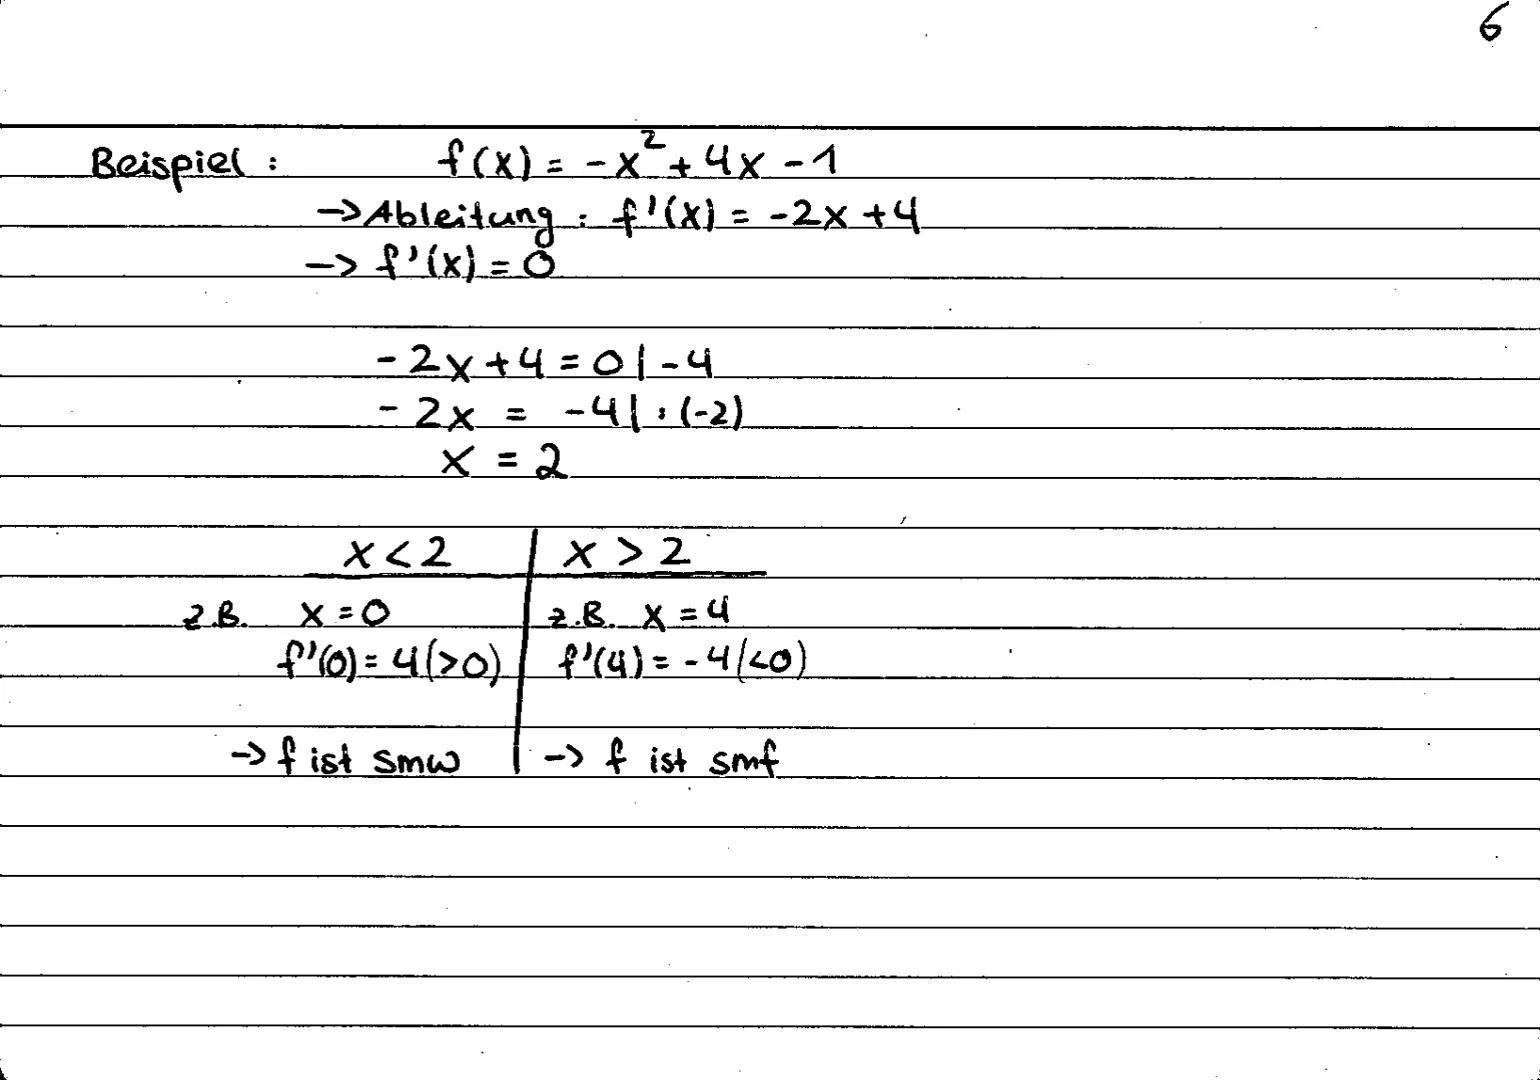 6
Beispiel : f(x) = -x² + 4x - 1
-> Ableitung : f'(x) = -2x + 4
-> f'(x) = 0
-2x + 4 = 0 | -4
-2x = -4 | : (-2)
x = 2
x < 2 | x > 2
z.B. x = 0 | z.B. x = 4
f'(0) = 4 (>0) | f'(4) = -4 (<0)
-> f ist smw | -> f ist smf